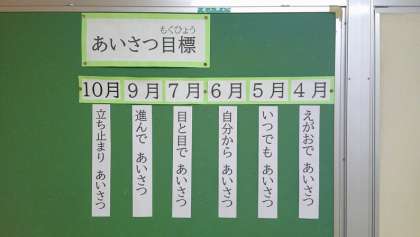 もくひょう
あいさつ目標
4月
えがおで あいさつ
5月
いつでも あいさつ
6月
自分から あいさつ
7月
目と目で あいさつ
9月
進んで あいさつ
10月
立ち止まり あいさつ